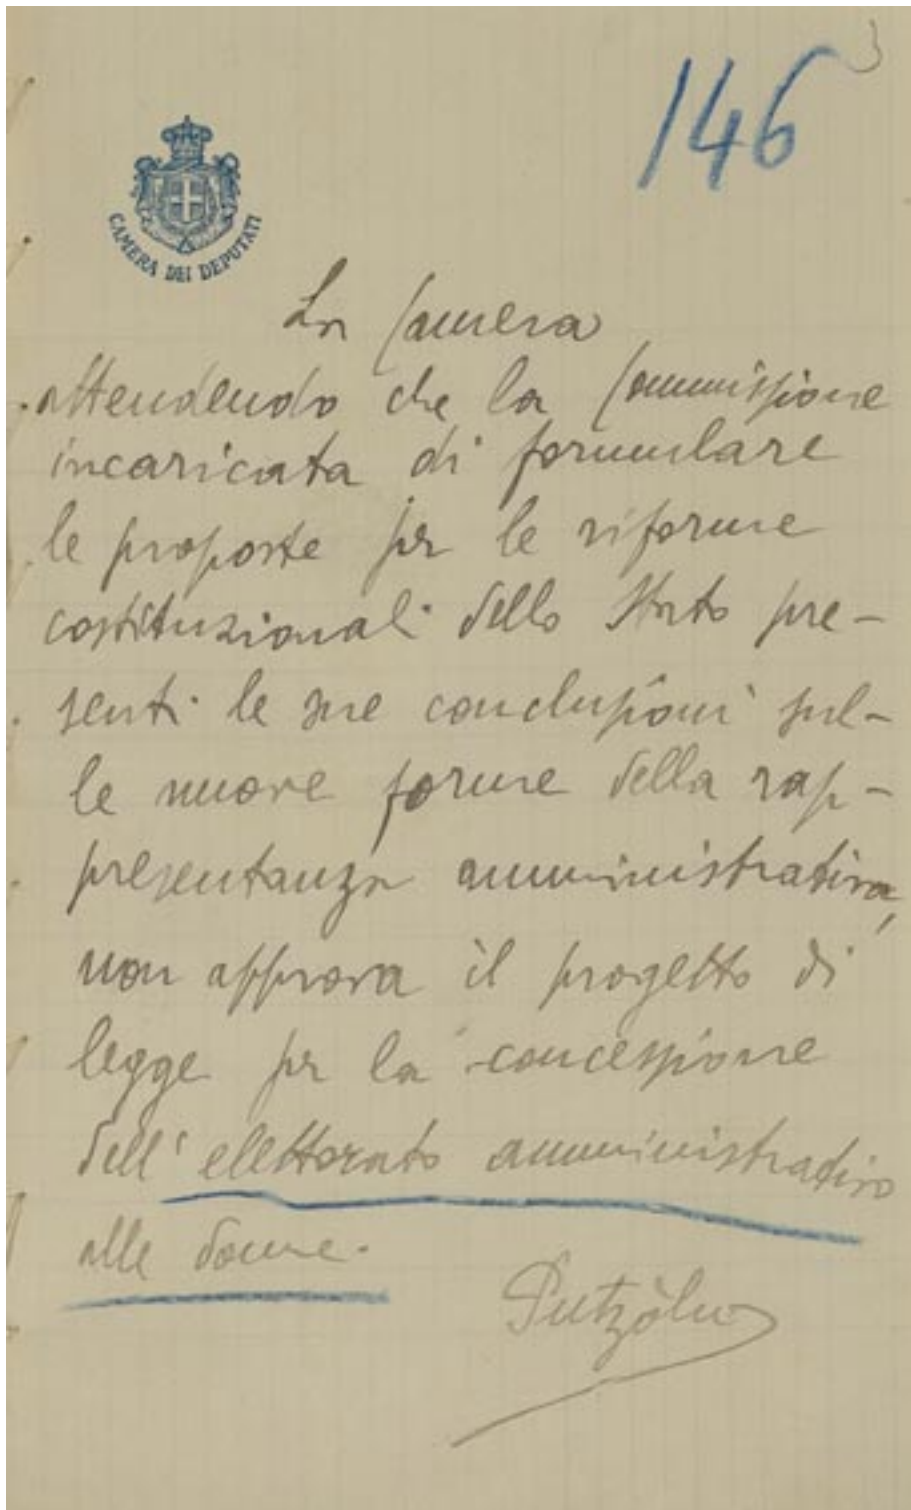 3
146
CAMERA DEI DEPUTATI
La Camera
attendendo che la Commissione
incaricata di formulare
le proposte per le riforme
costituzionali dello Stato pre-
senti le sue conclusioni sul-
le nuove forme della rap-
presentanza amministrativa,
non approva il progetto di
legge per la concessione
dell'elettorato amministrativo
alle donne.
Putzòlu